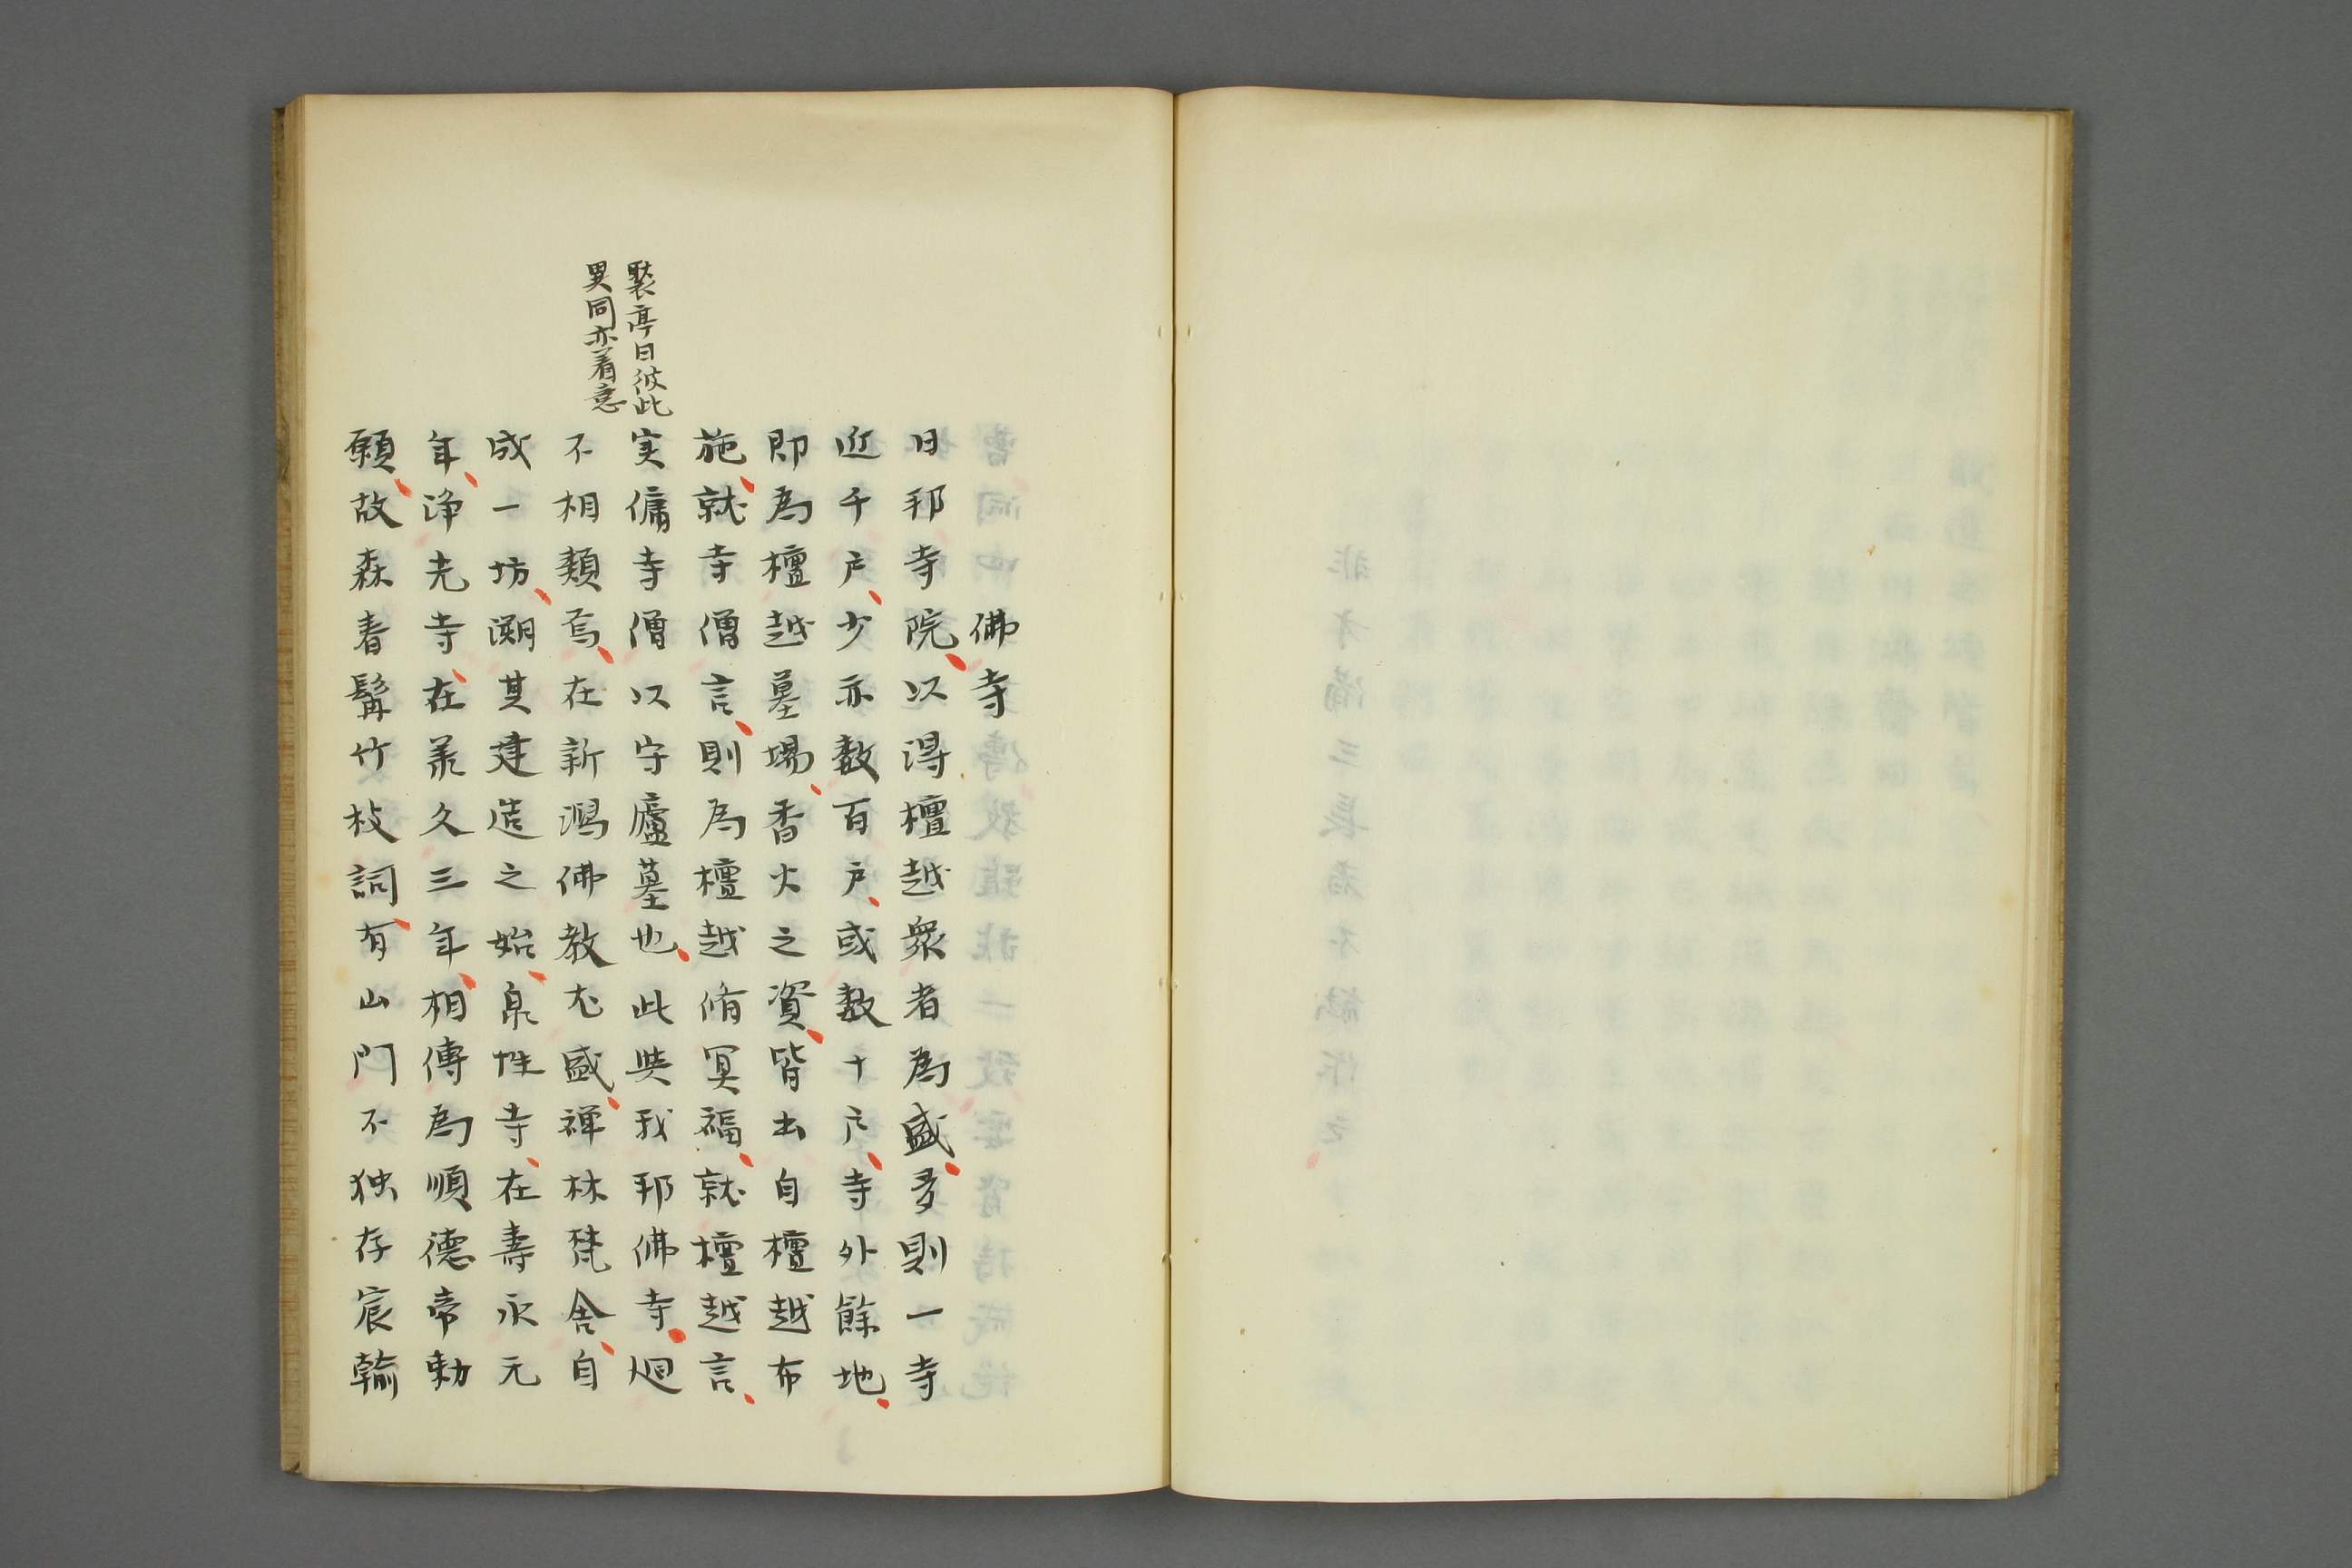 佛寺
日邦寺院、以得檀越衆者為盛、多則一寺
近千戸、少亦数百戸、或数十戸、寺外餘地、
即為檀越墓場、香火之資、皆出自檀越布
施、就寺僧言、則為檀越脩冥福、就檀越言、
実傭寺僧以守廬墓也、此與我邦佛寺、迥
不相類焉、在新潟佛教尤盛、禅林梵舎、自
成一坊、溯其建造之始、泉性寺、在壽永元
年、浄光寺、在承久三年、相傳為順德帝勅
願、故森春髯竹枝詞、有山門不独存宸翰
裳亭曰彼此
異同亦着意